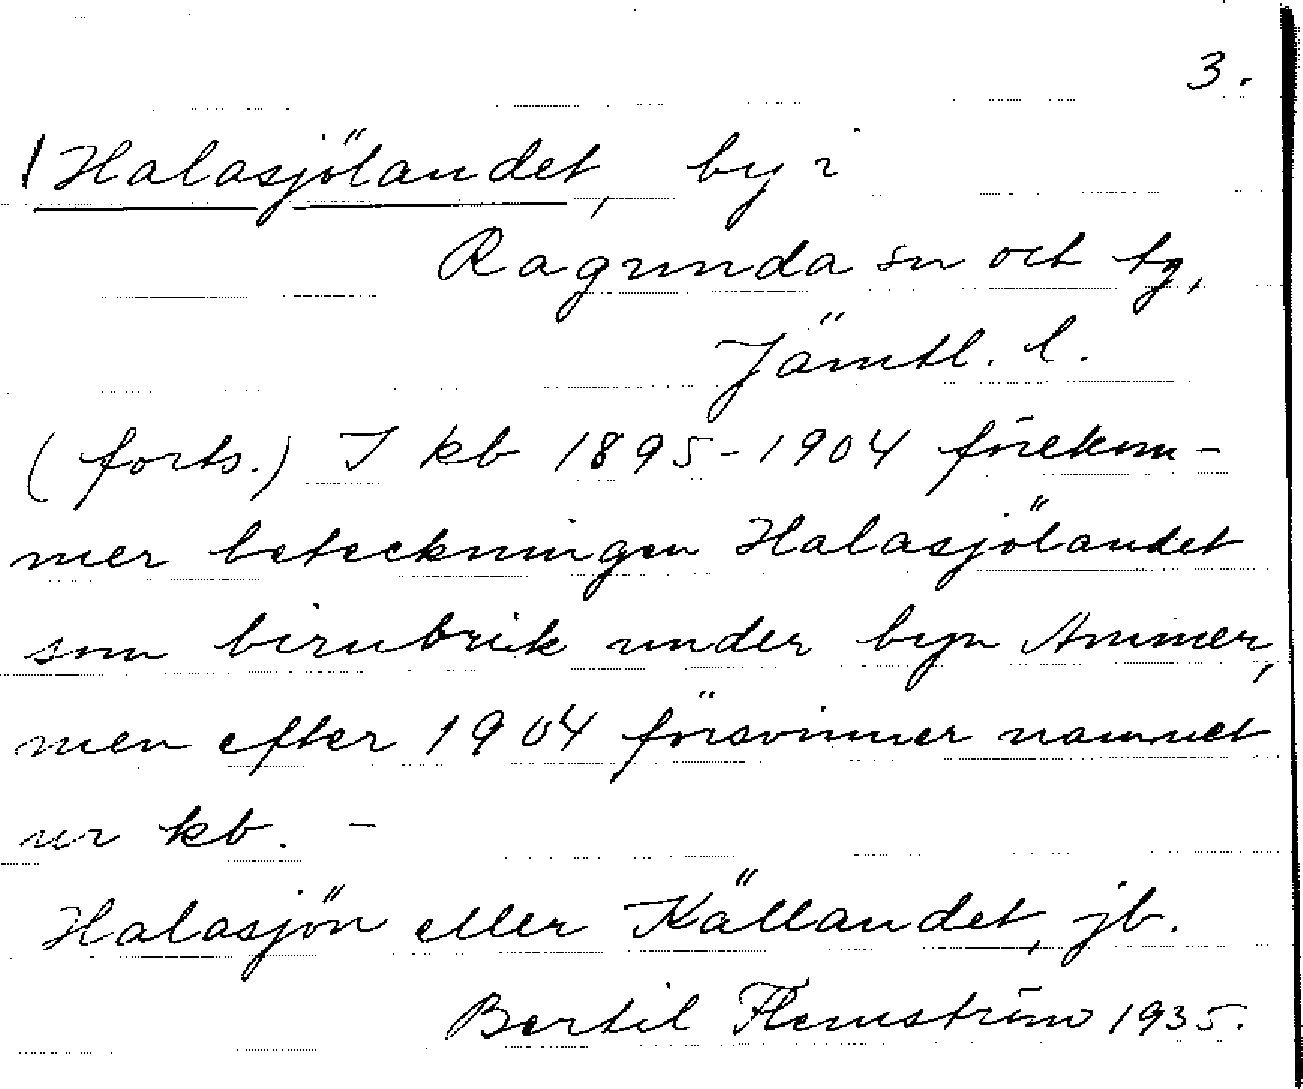 3.
Halasjölandet, by i
Ragunda sn och tg,
Jämtl. l.
(forts.) I kb 1895-1904 förekom-
mer beteckningen Halasjölandet
som birubrik under byn Ammer,
men efter 1904 försvinner namnet
ur kb. -
Halasjön eller Källandet, jb.
Bertil Flemström 1935.